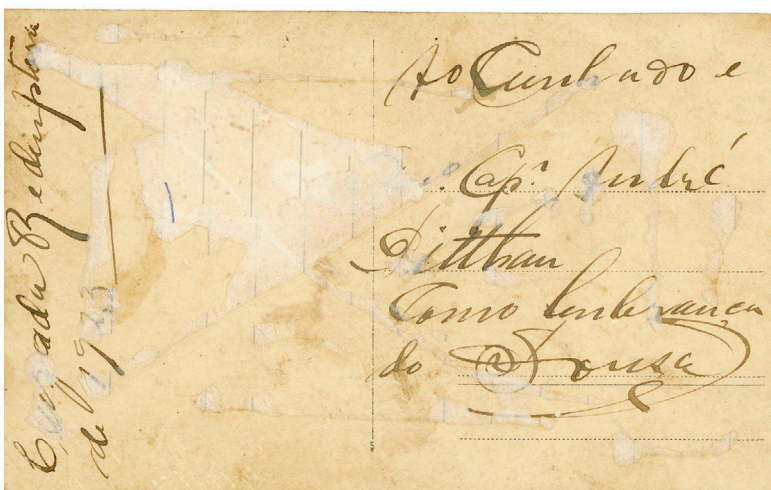 Cruzada Redemptora
de 1923
Ao Cunhado e
Cap.ⁿ André
Dittbrau
Como lembranca
do Sousa